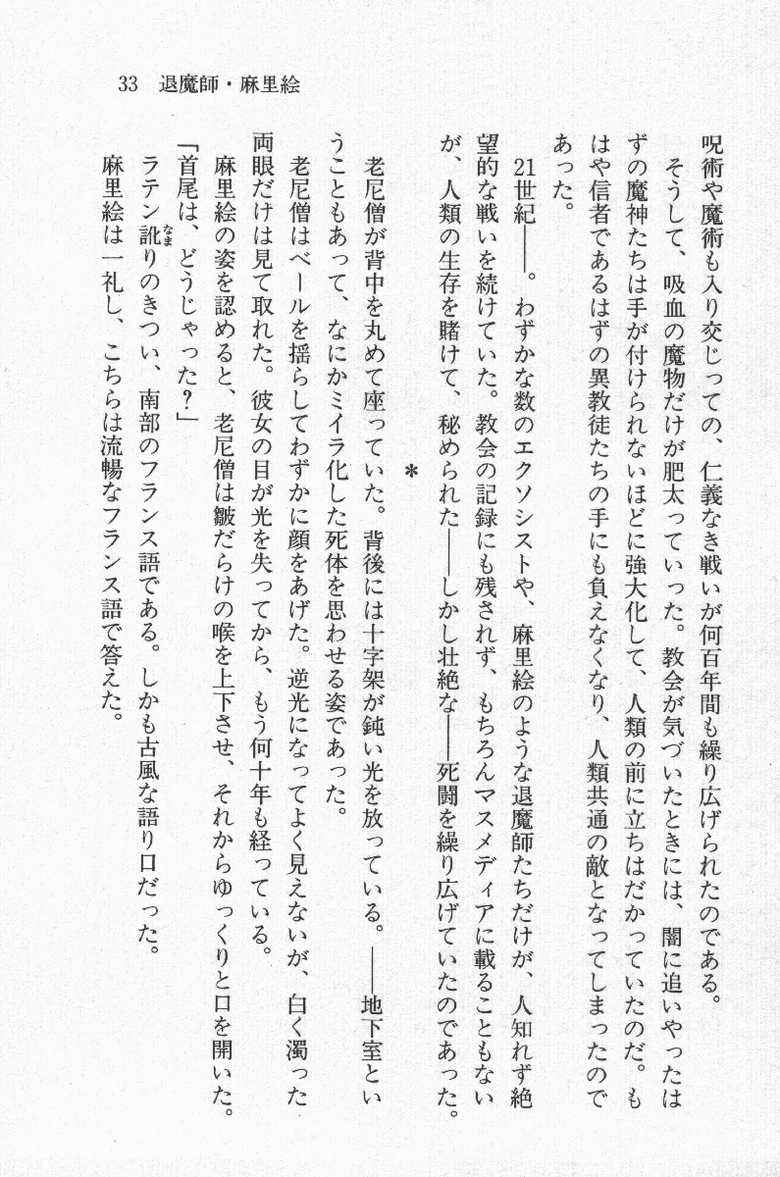 33　退魔師・麻里絵
呪術や魔術も入り交じっての、仁義なき戦いが何百年間も繰り広げられたのである。
　そうして、吸血の魔物だけが肥太っていった。教会が気づいたときには、闇に追いやったは
ずの魔神たちは手が付けられないほどに強大化して、人類の前に立ちはだかっていたのだ。も
はや信者であるはずの異教徒たちの手にも負えなくなり、人類共通の敵となってしまったので
あった。
　21世紀――。わずかな数のエクソシストや、麻里絵のような退魔師たちだけが、人知れず絶
望的な戦いを続けていた。教会の記録にも残されず、もちろんマスメディアに載ることもない
が、人類の生存を賭けて、秘められた――しかし壮絶な――死闘を繰り広げていたのであった。
＊
　老尼僧が背中を丸めて座っていた。背後には十字架が鈍い光を放っている。――地下室とい
うこともあって、なにかミイラ化した死体を思わせる姿であった。
　老尼僧はベールを揺らしてわずかに顔をあげた。逆光になってよく見えないが、白く濁った
両眼だけは見て取れた。彼女の目が光を失ってから、もう何十年も経っている。
　麻里絵の姿を認めると、老尼僧は皺だらけの喉を上下させ、それからゆっくりと口を開いた。
「首尾は、どうじゃった？」
　ラテン訛りのきつい、南部のフランス語である。しかも古風な語り口だった。
なま
　麻里絵は一礼し、こちらは流暢なフランス語で答えた。